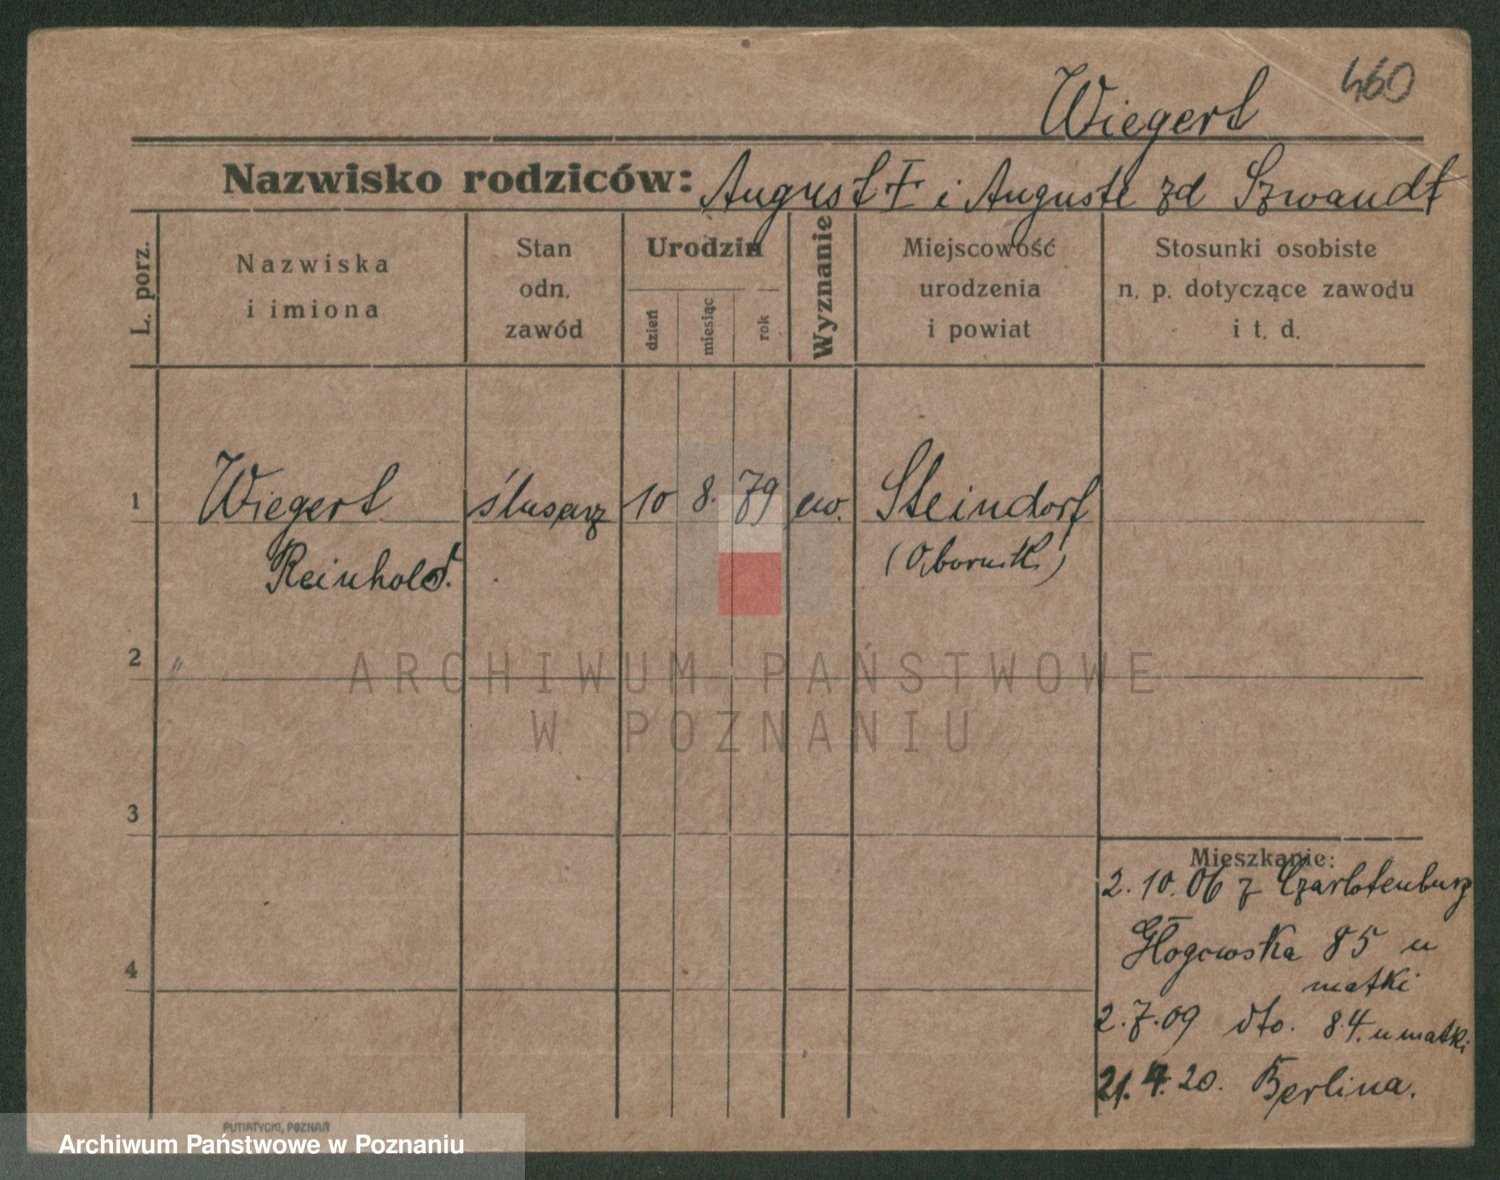 460
Wiegert
Nazwisko rodziców: August † i Auguste zd Szwandt
L. porz.
Nazwiska
i imiona
Stan
odn.
zawód
Urodzin
dzień
miesiąc
rok
Wyznanie
Miejscowość
urodzenia
i powiat
Stosunki osobiste
n. p. dotyczące zawodu
i t. d.
1 Wiegert ślusarz 10 8. 79 ew. Steindorf
Reinhold. (Obornik)
2 "
ARCHIWUM PAŃSTWOWE
W POZNANIU
3
4
Mieszkanie:
2. 10. 06 z Czarlotenburg
Głogowska 85 u
matki
2. 7. 09 dto. 84. u matki
21. 4. 20. Berlina.
PUTIATYCKI, POZNAŃ
Archiwum Państwowe w Poznaniu